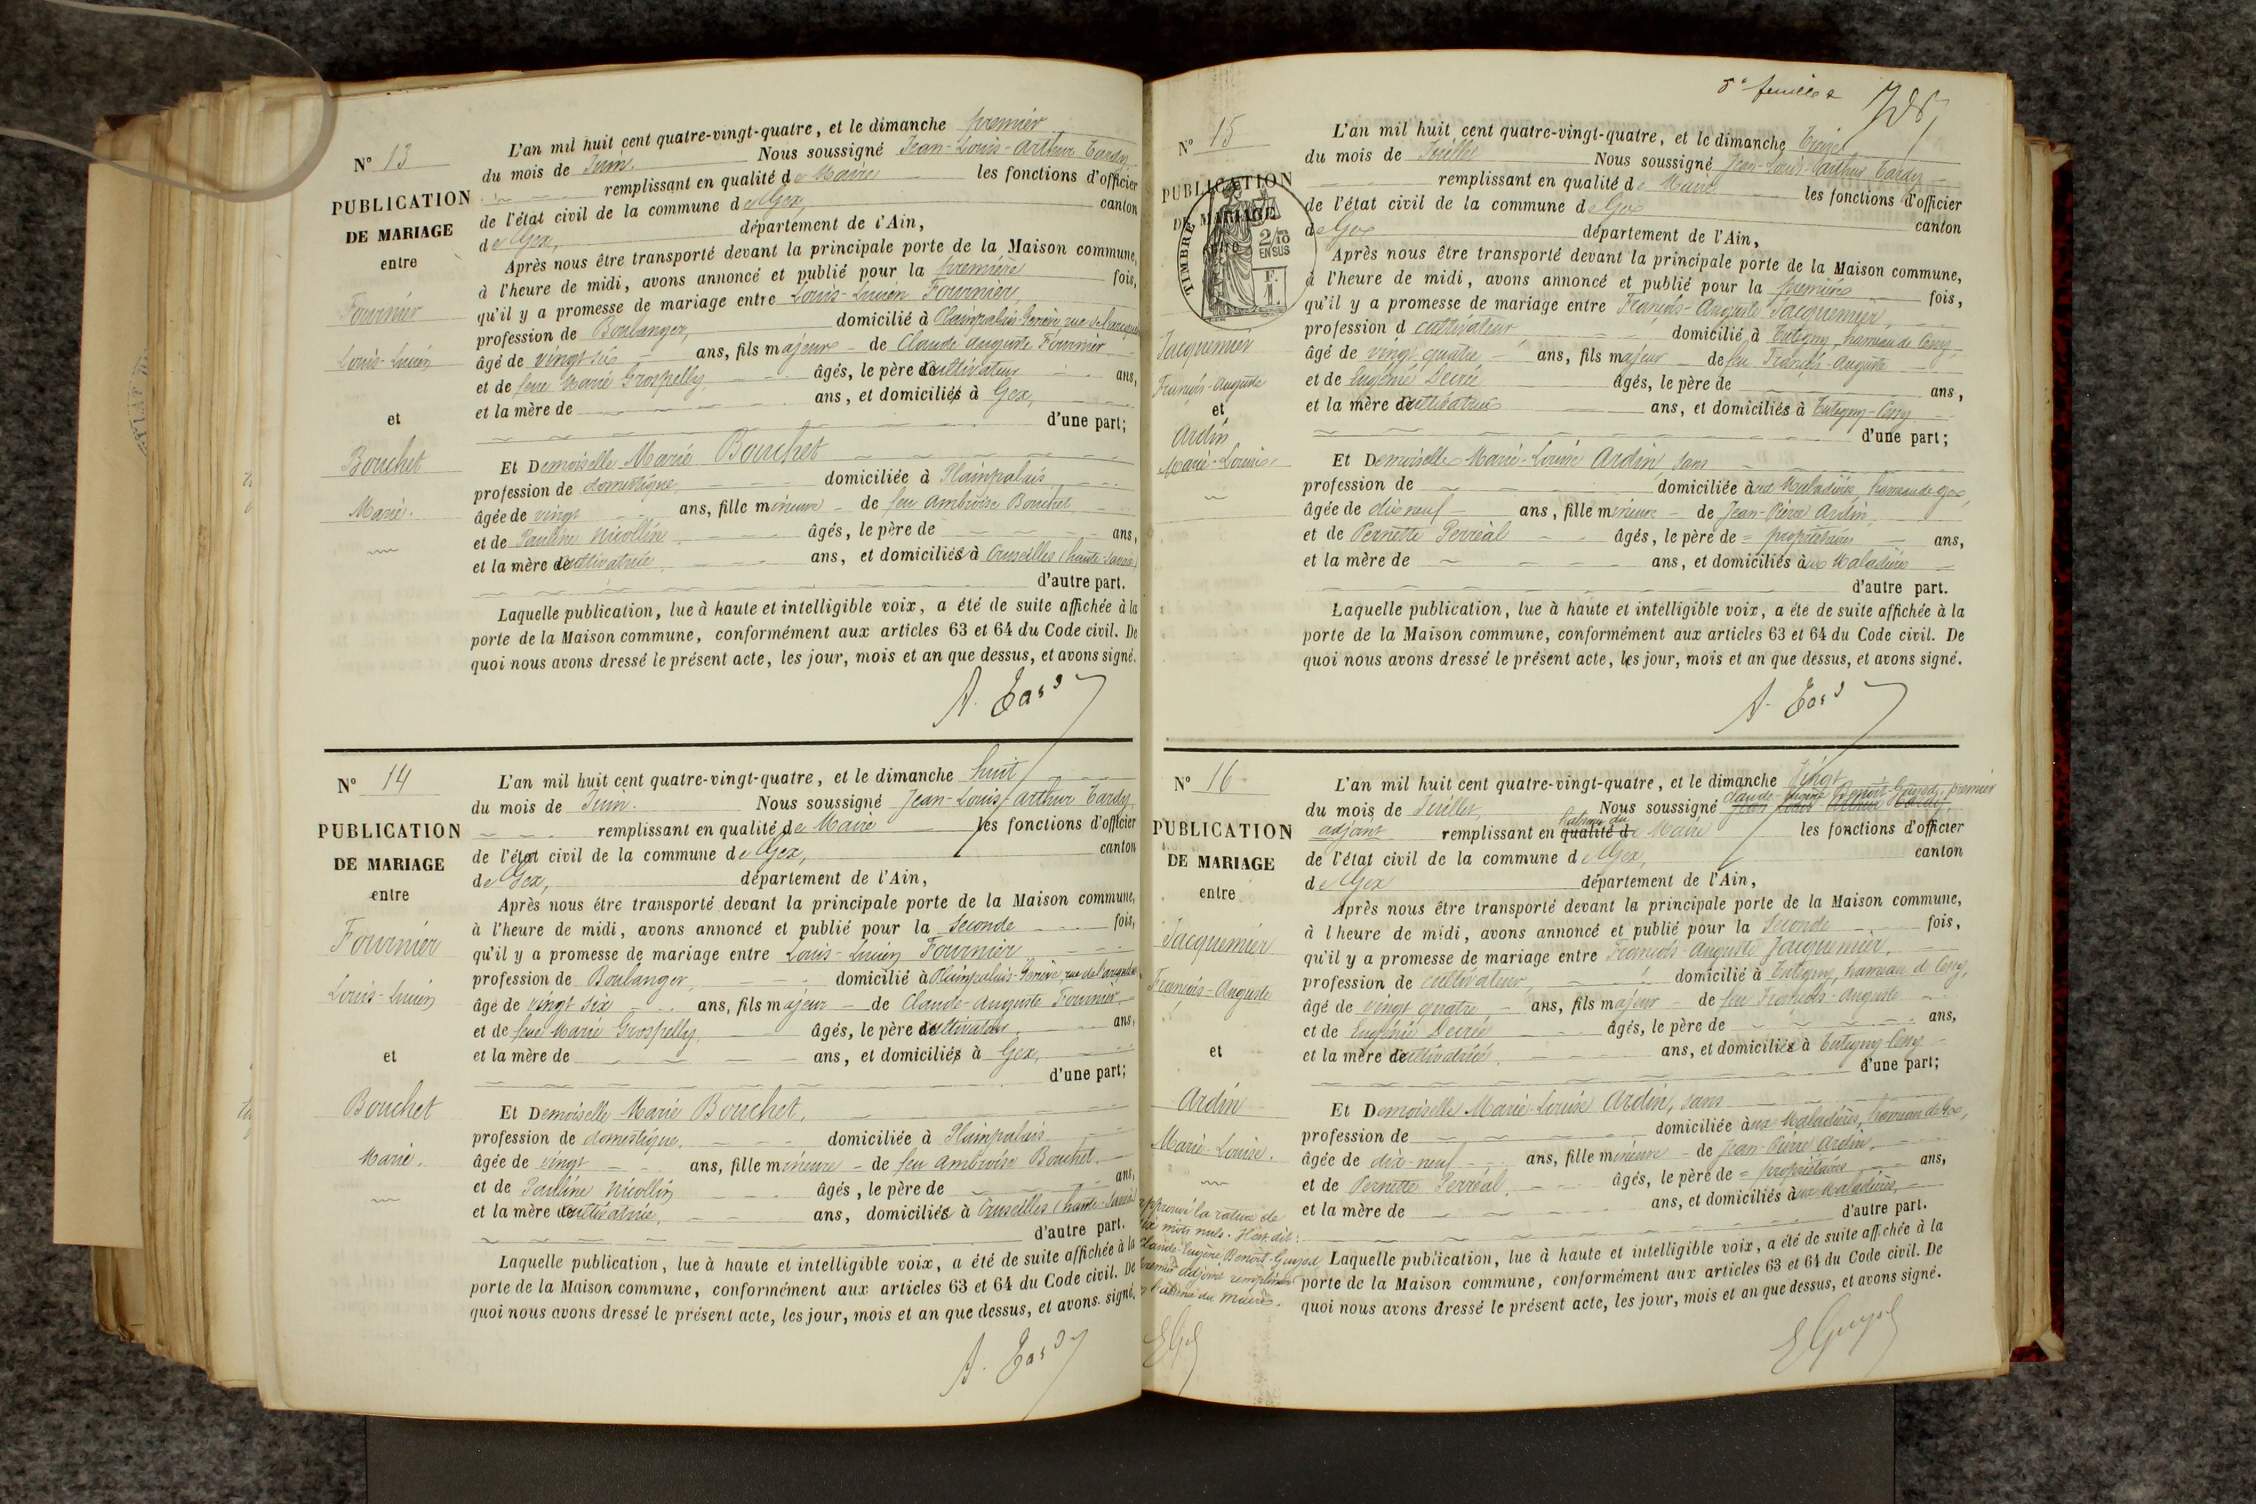 N° 13
PUBLICATION
DE MARIAGE
entre
Fournier
Louis-Lucien
et
Bouchet
Marie.
L'an mil huit cent quatre-vingt-quatre, et le dimanche premier
du mois de Juin. Nous soussigné Jean-Louis-Arthur Tardy
remplissant en qualité de Maire les fonctions d'officier
de l'état civil de la commune de Gex, canton
de Gex, département de l'Ain,
Après nous être transporté devant la principale porte de la Maison commune,
à l'heure de midi, avons annoncé et publié pour la première fois,
qu'il y a promesse de mariage entre Louis-Lucien Fournier,
profession de Boulanger, domicilié à Plainpalais-Genève, rue de
âgé de vingt six ans, fils majeur de Claude Auguste Fournier
et de feue Marie Grospelly, âgés, le père cultivateur ans,
et la mère de ans, et domiciliés à Gex,
d'une part;
Et Demoiselle Marie Bouchet
profession de domestique, domiciliée à Plainpalais
âgée de vingt ans, fille mineure de feu Ambroise Bouchet
et de Pauline Nicollin âgés, le père de ans,
et la mère cultivatrice ans, et domiciliés à Cruseilles (haute-Savoie)
d'autre part.
Laquelle publication, lue à haute et intelligible voix, a été de suite affichée à la
porte de la Maison commune, conformément aux articles 63 et 64 du Code civil. De
quoi nous avons dressé le présent acte, les jour, mois et an que dessus, et avons signé.
A. Tardy
N° 14
PUBLICATION
DE MARIAGE
entre
Fournier
Louis-Lucien
et
Bouchet
Marie.
L'an mil huit cent quatre-vingt-quatre, et le dimanche huit
du mois de Juin. Nous soussigné Jean-Louis Arthur Tardy
remplissant en qualité de Maire les fonctions d'officier
de l'état civil de la commune de Gex, canton
de Gex, département de l'Ain,
Après nous être transporté devant la principale porte de la Maison commune,
à l'heure de midi, avons annoncé et publié pour la Seconde fois,
qu'il y a promesse de mariage entre Louis-Lucien Fournier
profession de Boulanger, domicilié à Plainpalais-Genève, rue de
âgé de vingt six ans, fils majeur de Claude-Auguste Fournier
et de feue Marie Grospelly, âgés, le père cultivateur ans,
et la mère de ans, et domiciliés à Gex,
d'une part;
Et Demoiselle Marie Bouchet,
profession de domestique, domiciliée à Plainpalais
âgée de vingt ans, fille mineure de feu Ambroise Bouchet
et de Pauline Nicollin âgés, le père de ans,
et la mère cultivatrice, ans, domiciliés à Cruseilles (haute-Savoie)
d'autre part.
Laquelle publication, lue à haute et intelligible voix, a été de suite affichée à la
porte de la Maison commune, conformément aux articles 63 et 64 du Code civil. De
quoi nous avons dressé le présent acte, les jour, mois et an que dessus, et avons signé.
A. Tardy
5e feuille
N° 15
PUBLICATION
DE MARIAGE
TIMBRE
2/10
EN SUS
Jacquemier
François-Auguste
et
Ardin
Marie-Louise
L'an mil huit cent quatre-vingt-quatre, et le dimanche treize
du mois de Juillet Nous soussigné Jean-Louis-Arthur Tardy
remplissant en qualité de Maire les fonctions d'officier
de l'état civil de la commune de Gex canton
de Gex département de l'Ain,
Après nous être transporté devant la principale porte de la Maison commune,
à l'heure de midi, avons annoncé et publié pour la première fois,
qu'il y a promesse de mariage entre François-Auguste Jacquemier,
profession d cultivateur domicilié à Tutegny, hameau de Cessy,
âgé de vingt quatre ans, fils majeur de feu François-Auguste
et de Eugénie âgés, le père de ans,
et la mère cultivatrice ans, et domiciliés à Tutegny-Cessy
d'une part;
Et Demoiselle Marie-Louise Ardin, sans
profession de domiciliée aux Maladières, hameau de Gex,
âgée de dix neuf ans, fille mineure de Jean-Pierre Ardin,
et de Pernette Perréal âgés, le père de = propriétaires ans,
et la mère de ans, et domiciliés aux Maladières
d'autre part.
Laquelle publication, lue à haute et intelligible voix, a été de suite affichée à la
porte de la Maison commune, conformément aux articles 63 et 64 du Code civil. De
quoi nous avons dressé le présent acte, les jour, mois et an que dessus, et avons signé.
A. Tardy
N° 16
PUBLICATION
DE MARIAGE
entre
Jacquemier
François-Auguste
et
Ardin
Marie-Louise.
L'an mil huit cent quatre-vingt-quatre, et le dimanche vingt
Claude-Eugène Benoit-Guyod, premier
du mois de Juillet, Nous soussigné Jean Louis Arthur Tardy,
adjoint remplissant en qualité de Maire les fonctions d'officier
de l'état civil de la commune de Gex, canton
de Gex département de l'Ain,
Après nous être transporté devant la principale porte de la Maison commune,
à l'heure de midi, avons annoncé et publié pour la Seconde fois,
qu'il y a promesse de mariage entre François-Auguste Jacquemier,
profession de cultivateur, domicilié à Tutegny, hameau de Cessy,
âgé de vingt quatre ans, fils majeur de feu François-Auguste
et de Eugénie âgés, le père de ans,
et la mère cultivatrice, ans, et domiciliés à Tutegny-Cessy
d'une part;
Et Demoiselle Marie-Louise Ardin, sans
profession de domiciliée aux Maladières, hameau de Gex,
âgée de dix-neuf ans, fille mineure de Jean-Pierre Ardin,
et de Pernette Perréal, âgés, le père de = propriétaires ans,
et la mère de ans, et domiciliés aux Maladières,
d'autre part.
Laquelle publication, lue à haute et intelligible voix, a été de suite affichée à la
porte de la Maison commune, conformément aux articles 63 et 64 du Code civil. De
quoi nous avons dressé le présent acte, les jour, mois et an que dessus, et avons signé.
approuvé la rature de
six mots nuls.
Claude-Eugène Benoit-Guyod
premier adjoint remplissant
du maire.
E Guyod